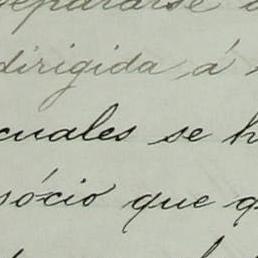 separarse
dirigida á
cuales se h
sócio que q